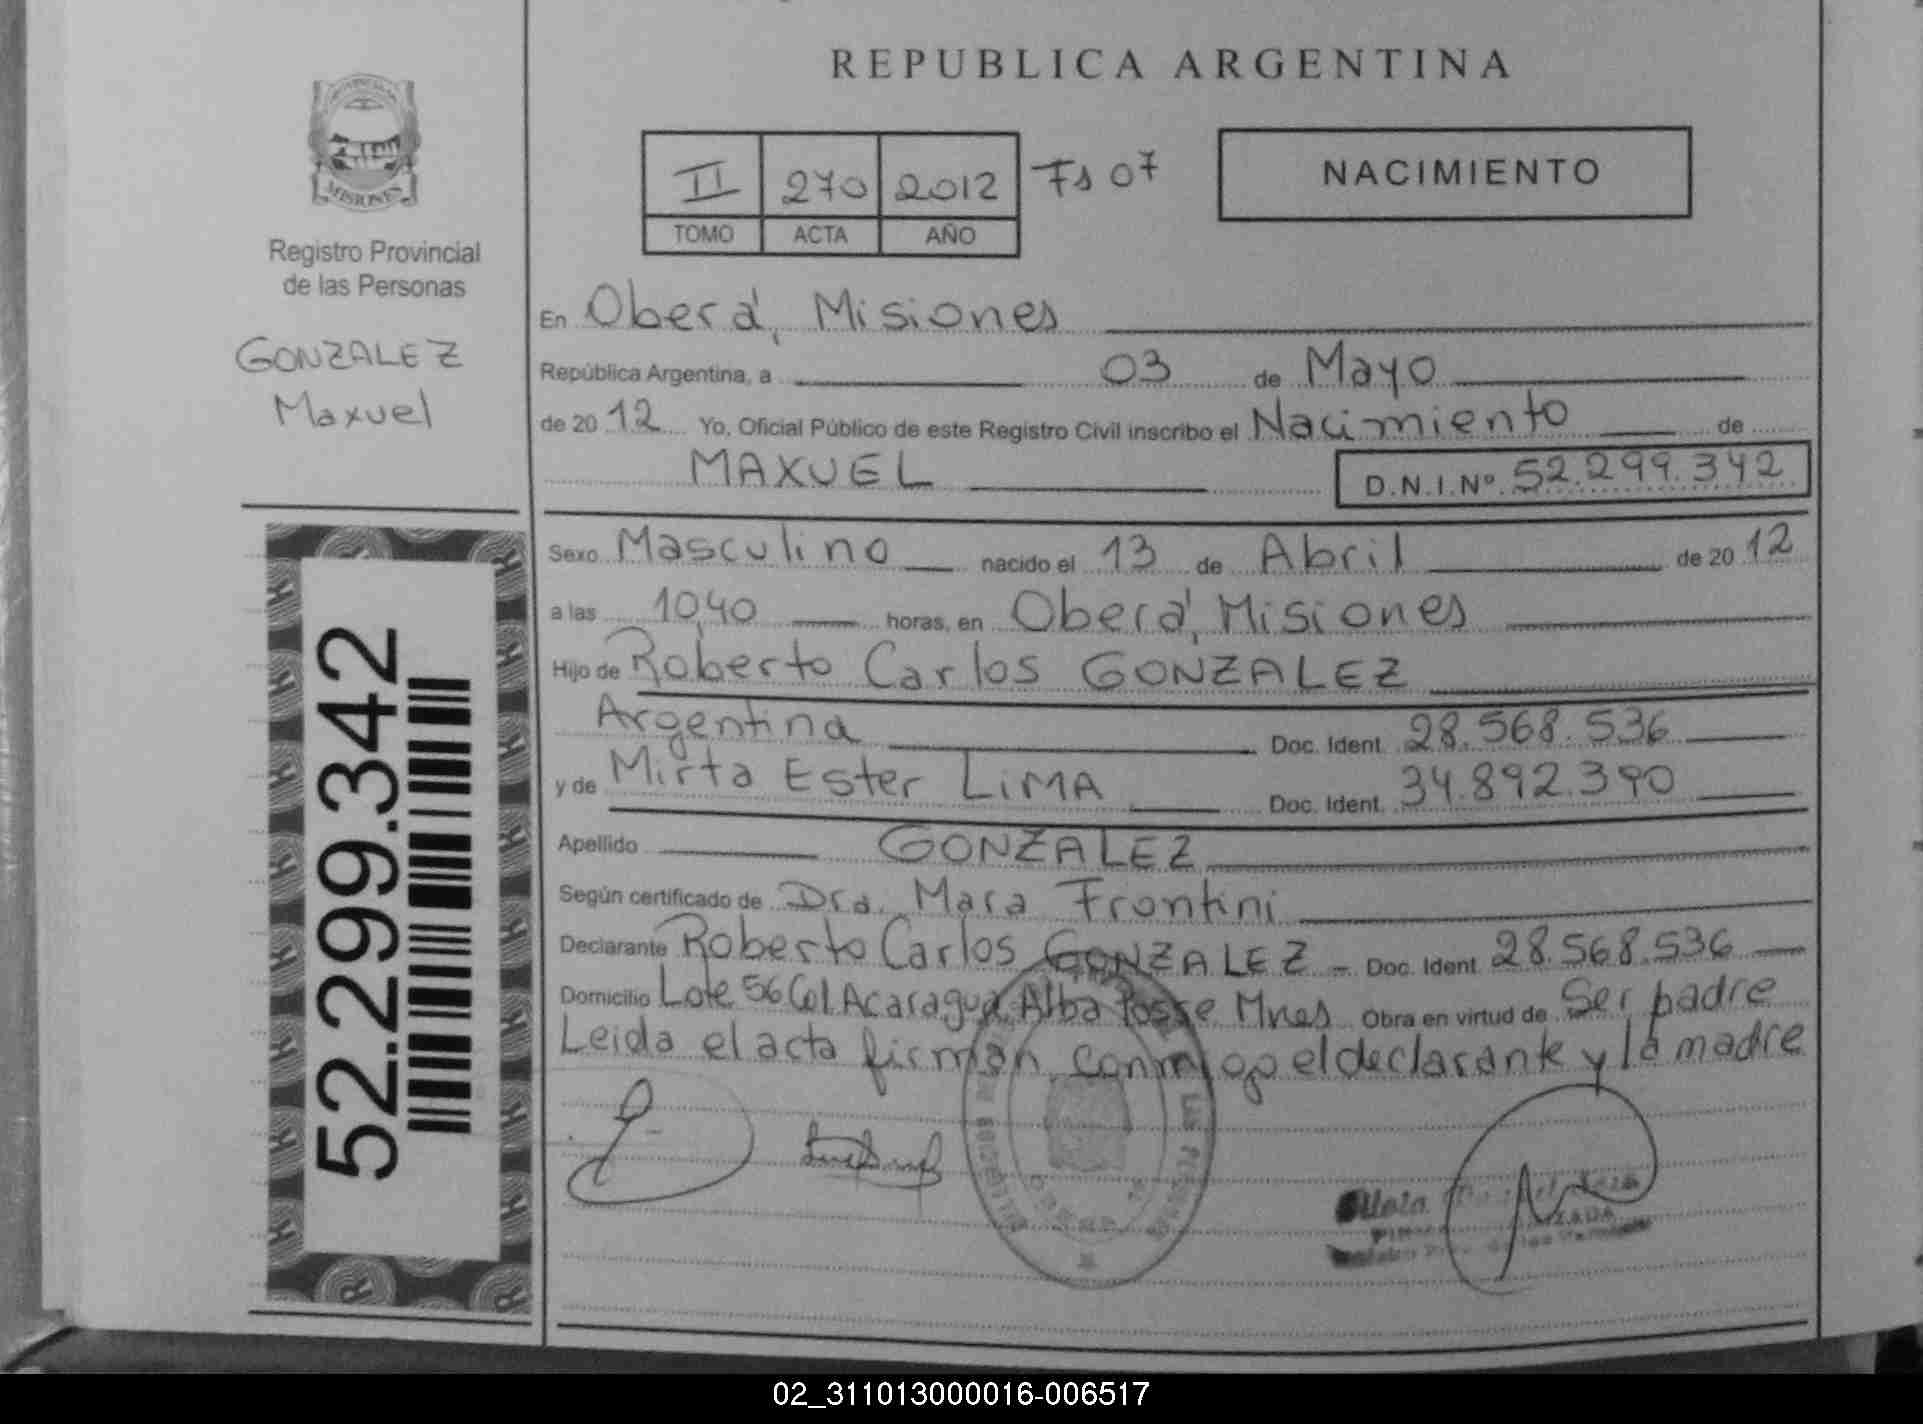 REPUBLICA ARGENTINA
MISIONES
Registro Provincial
de las Personas
GONZALEZ
Maxuel
II 270 2012 Fs 07
TOMO ACTA AÑO
NACIMIENTO
En Oberá, Misiones
República Argentina, a 03 de Mayo
de 20 12 Yo, Oficial Público de este Registro Civil inscribo el Nacimiento de
MAXUEL D.N.I.Nº 52.299.342
Sexo Masculino nacido el 13 de Abril de 20 12
a las 10,40 horas, en Oberá, Misiones
Hijo de Roberto Carlos GONZALEZ
Argentina Doc. Ident. 28.568.536
y de Mirta Ester LiMA Doc. Ident. 34.892.390
Apellido GONZALEZ
Según certificado de Dra. Mara Frontini
Declarante Roberto Carlos GONZALEZ Doc. Ident. 28.568.536
Domicilio Lote 56 Col. Acaragua, Alba Posse Mnes Obra en virtud de Ser padre
Leida el acta firman conmigo el declarante y la madre
52.299.342
02_311013000016-006517